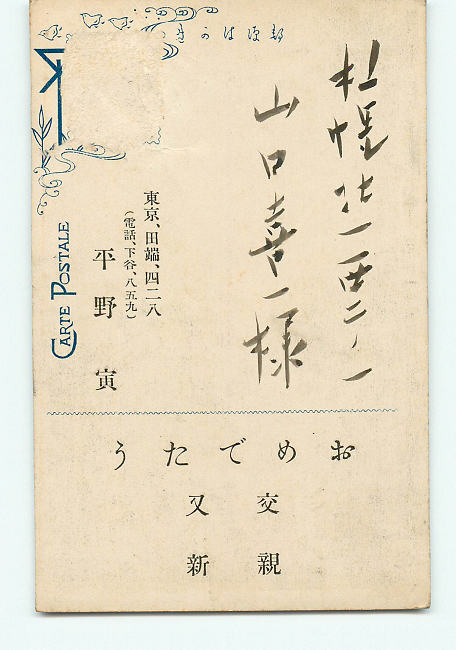 郵便はかき
札幌北一西二ノ一
山口喜一様
東京、田端、四二八
(電話、下谷、八五九)
平野寅
CARTE POSTALE
おめでたう
交親
又新